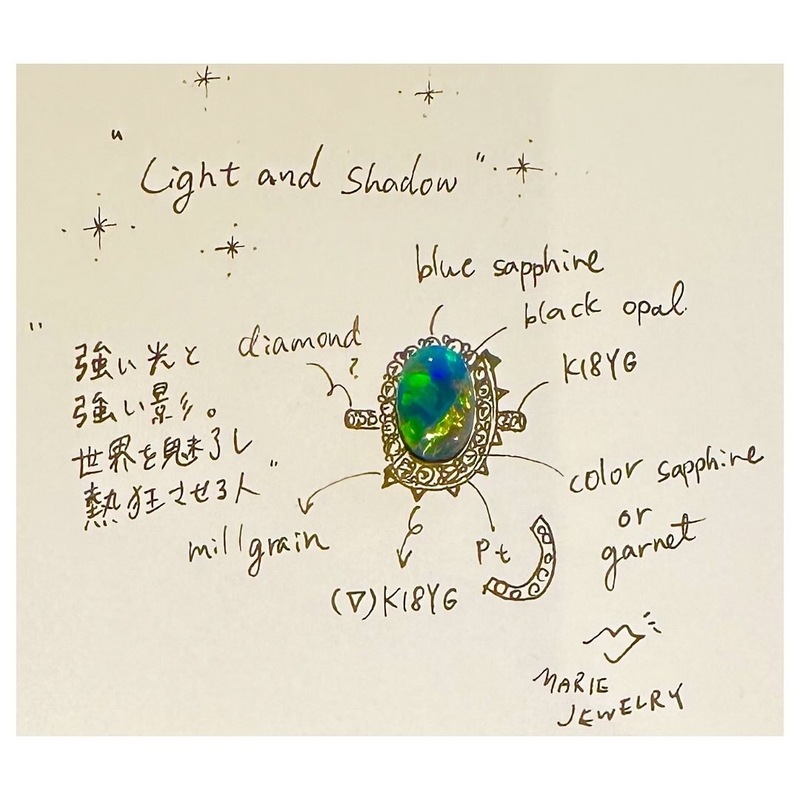 "Light and Shadow"
"強い光と
強い影。
世界を魅了し
熱狂させる人"
diamond
?
blue sapphire
black opal
K18YG
color sapphire
or
garnet
millgrain
(▽)K18YG
Pt
MARIE
JEWELRY